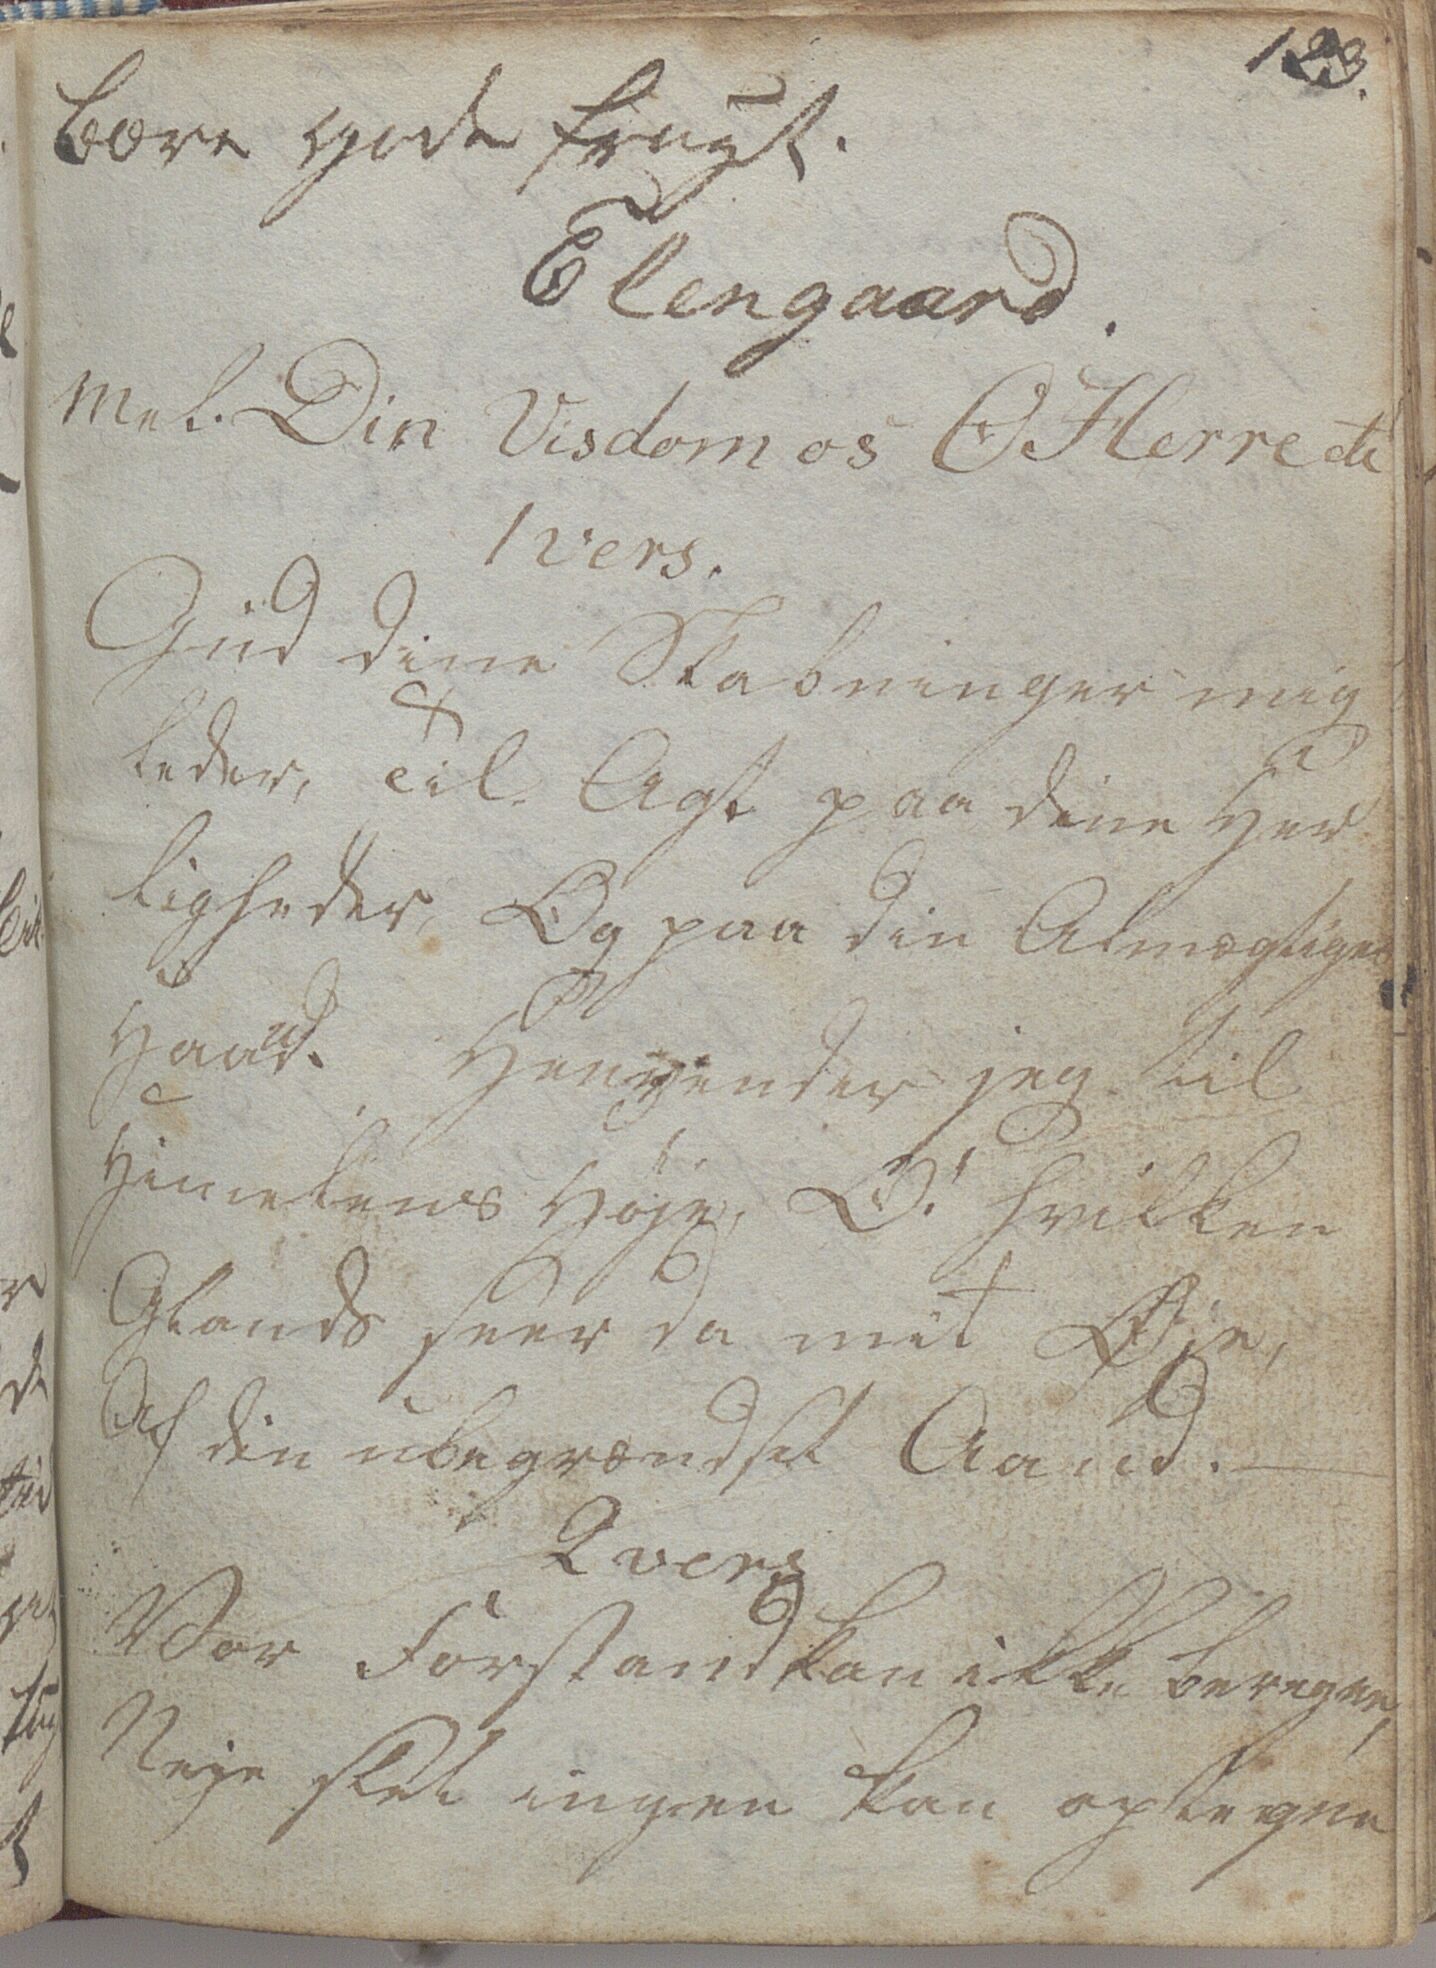 123.
bære gode frugt.
Elengaard.
Mel. Din Visdom os O Herre etc
1 vers.
Gud dine Skabninger mig
leder, til Agt paa dine Her
ligheder, Og paa din Almægtiges
Haand. Henvender jeg til
Himelens Høje, O! hvilken
Glands seer da mit Øje,
Af din ubegrændset Aand.
2 vers
Vor Forstand kan ikke beregne,
Neje slet ingen kan optegne